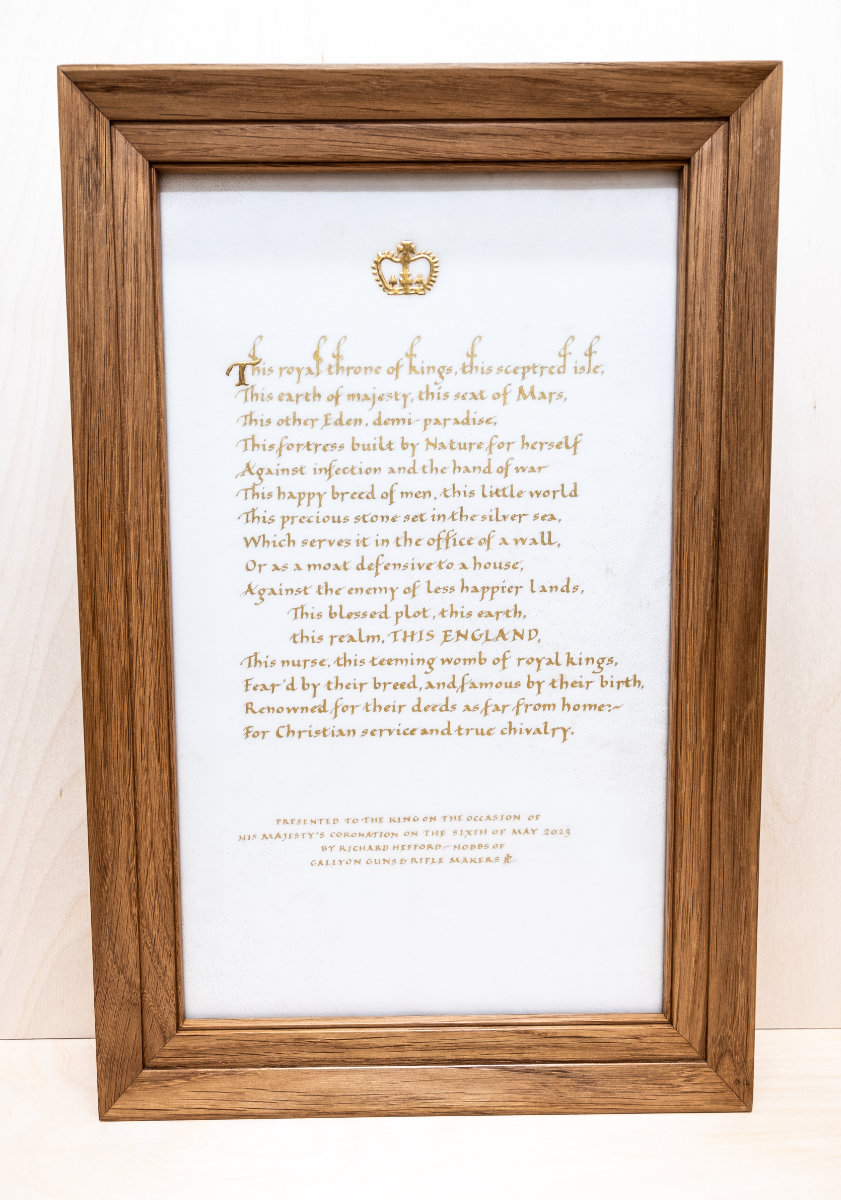 This royal throne of kings, this sceptred isle,
This earth of majesty, this seat of Mars,
This other Eden, demi-paradise,
This fortress built by Nature for herself
Against infection and the hand of war
This happy breed of men, this little world
This precious stone set in the silver sea,
Which serves it in the office of a wall,
Or as a moat defensive to a house,
Against the enemy of less happier lands,
This blessed plot, this earth,
this realm, THIS ENGLAND,
This nurse, this teeming womb of royal kings,
Fear'd by their breed, and famous by their birth,
Renowned for their deeds as far from home:~
For Christian service and true chivalry.
PRESENTED TO THE KING ON THE OCCASION OF
HIS MAJESTY'S CORONATION ON THE SIXTH OF MAY 2023
BY RICHARD HEFFORD~HOBBS OF
GALLYON GUNS & RIFLE MAKERS